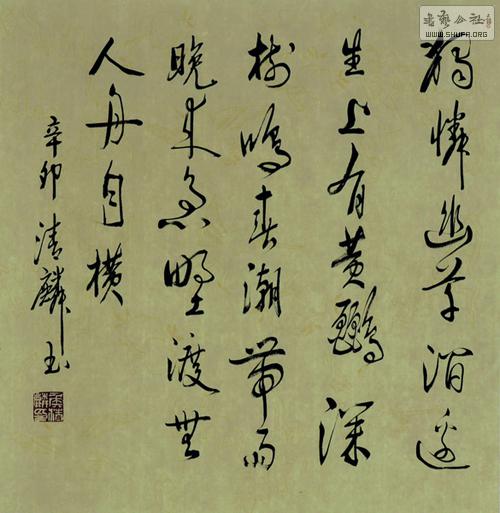 獨憐幽草澗邊
生上有黄鸝深
樹鳴春潮帶雨
晚来急野渡無
人舟自横
辛卯清麟書
書藝公社
WWW.SHUFA.ORG